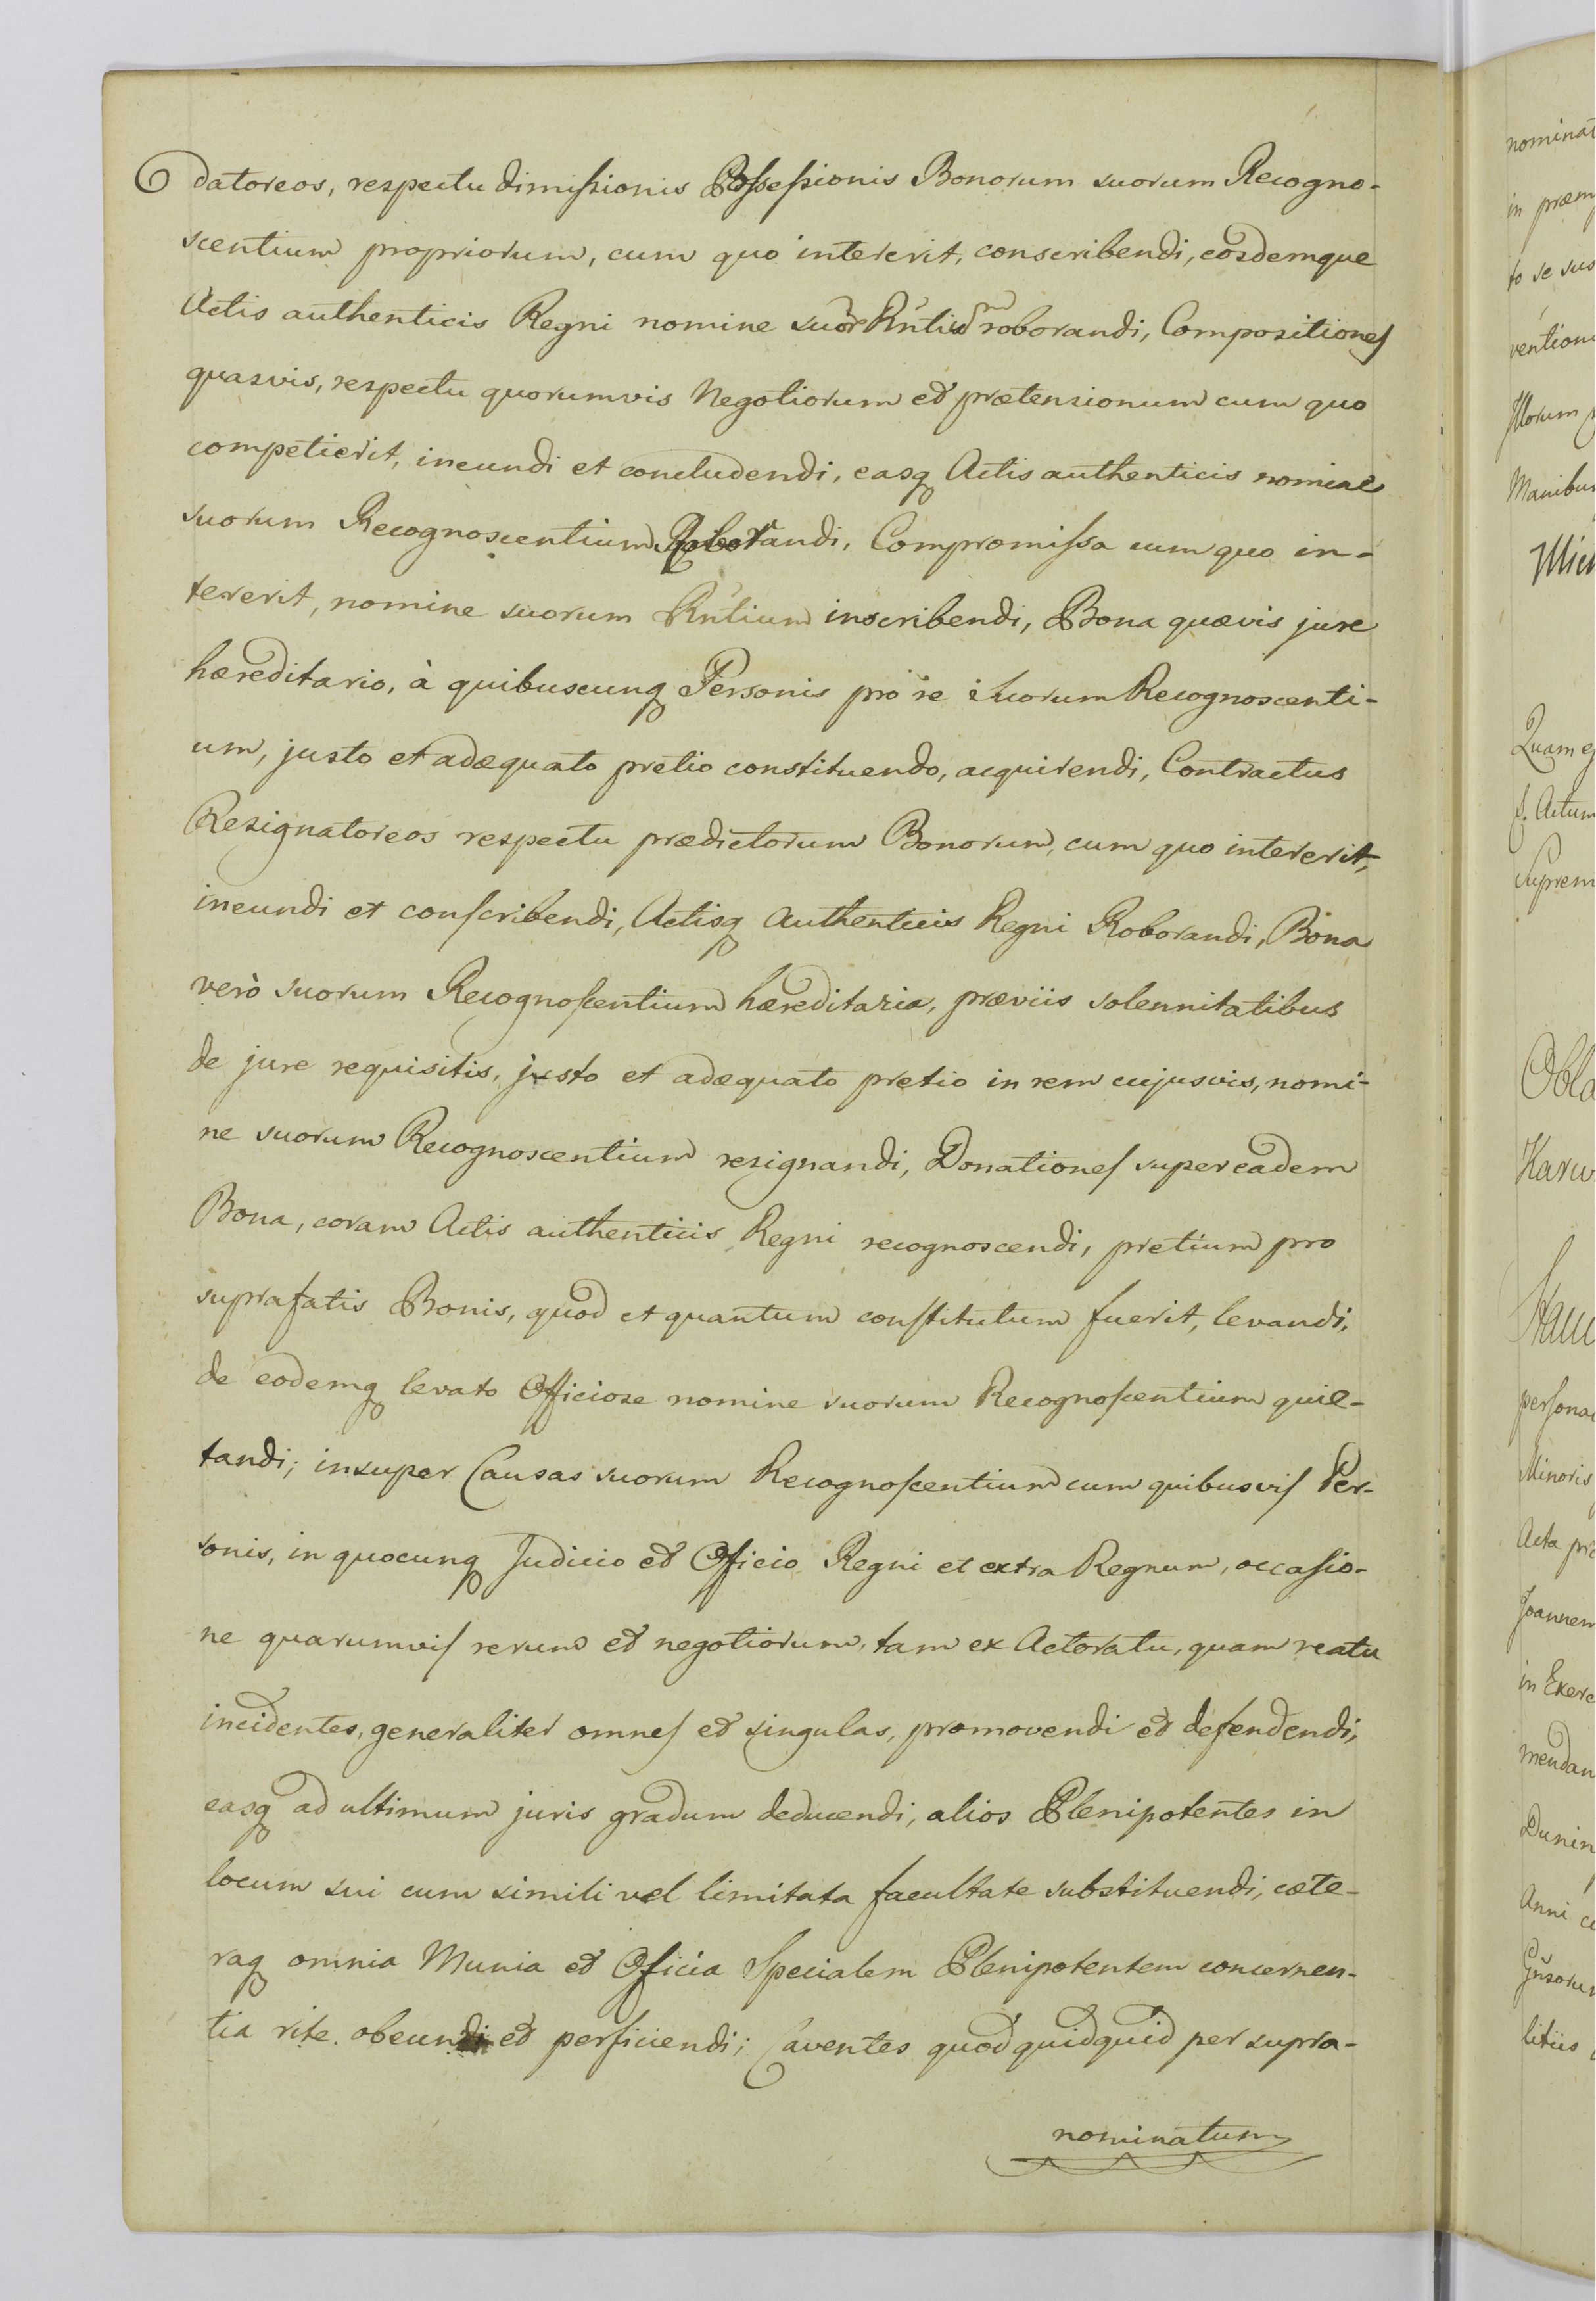 datoreos, respectu dimissionis Possessionis Bonorum suorum Recogno-
scentium propriorum, cum quo intererit, conscribendi, eosdemque
Actis authenticis Regni nomine suor Rntium roborandi, Compositiones
quasvis, respectu quorumvis Negotiorum et prætensionum cum quo
competierit, ineundi et concludendi, easq Actis authenticis nomine
suorum Recognoscentium Roborandi, Compromissa cum quo in-
tererit, nomine suorum Rntium inscribendi, Bona quævis jure
hæreditario, à quibuscunq Personis pro re suorum Recognoscenti-
um, justo et adæquato pretio constituendo, acquirendi, Contractus
Resignatoreos respectu prædictorum Bonorum, cum quo intererit,
ineundi et conscribendi, Actisq Authenticis Regni Roborandi, Bona
verò suorum Recognoscentium hæreditaria, præviis solennitatibus
de jure requisitis, justo et adæquato pretio in rem cujusvis, nomi-
ne suorum Recognoscentium resignandi, Donationes super eadem
Bona, coram Actis authenticis Regni recognoscendi, pretium pro
suprafatis Bonis, quod et quantum constitutum fuerit, levandi,
de eodemq levato Officiose nomine suorum Recognoscentium quie-
tandi; insuper Causas suorum Recognoscentium cum quibusvis Per-
sonis, in quocunq Judicio et Officio Regni et extra Regnum, occasio-
ne quarumvis rerum et negotiorum, tam ex Actoratu, quam reatu
incidentes, generaliter omnes et singulas, promovendi et defendendi,
easq ad ultimum juris gradum deducendi, alios Plenipotentes in
locum sui cum simili vel limitata facultate substituendi, cæte-
raq omnia Munia et Officia Specialem Plenipotentem concernen-
tia rite obeundi et perficiendi; Caventes quod quidquid per supra-
nominatum
nominat
in præm
to se sus
ventioni
Illorum
Manibus
Mich
Quam
Actum
Suprem
Obla
Karw
Stani
personal
Minoris
Acta pr
Joannem
in Exerc
mendan
Dunin
Anni
litiis